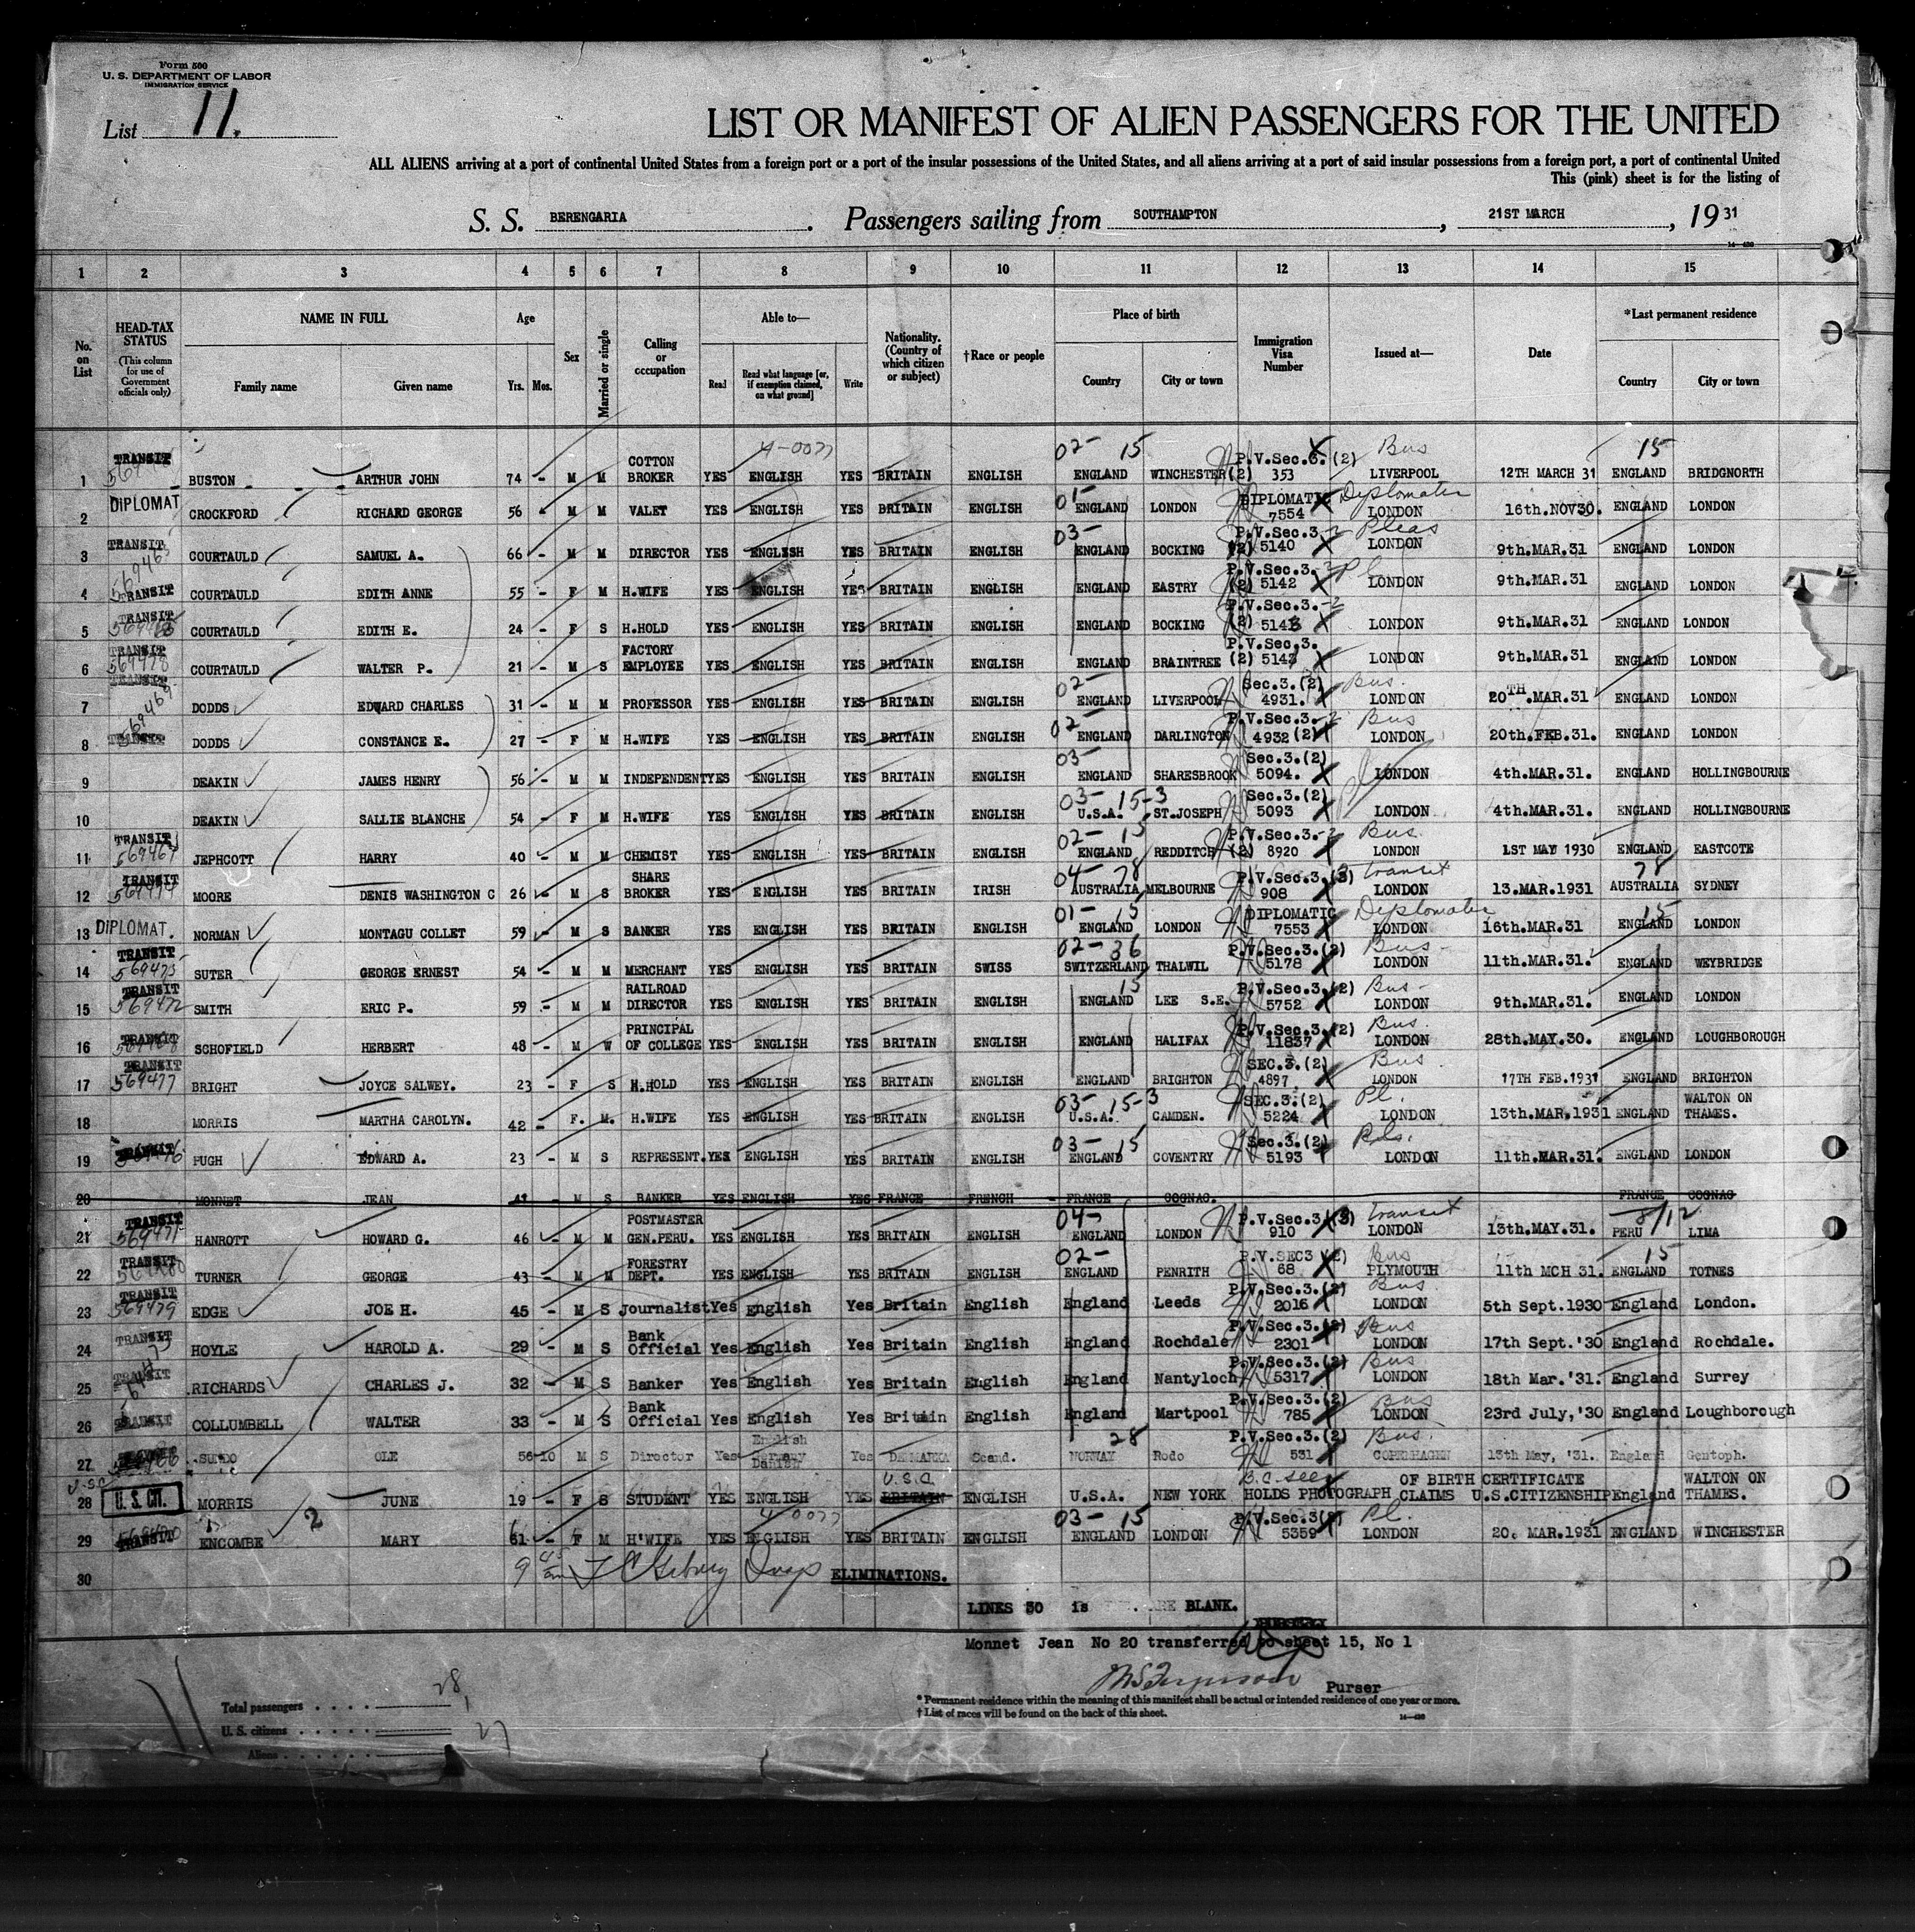 Form 500
U. S. DEPARTMENT OF LABOR
IMMIGRATION SERVICE
List 11.
LIST OR MANIFEST OF ALIEN PASSENGERS FOR THE UNITED
ALL ALIENS arriving at a port of continental United States from a foreign port or a port of the insular possessions of the United States, and all aliens arriving at a port of said insular possessions from a foreign port, a port of continental United
This (pink) sheet is for the listing of
S. S. BERENGARIA. Passengers sailing from SOUTHAMPTON, 21ST MARCH, 1931
1 2 3 4 5 6 7 8 9 10 11 12 13 14 15
No. on List HEAD-TAX STATUS (This column for use of Government officials only) NAME IN FULL Family name Given name Age Yrs. Mos. Sex Married or single Calling or occupation Able to— Read Read what language [or, if exemption claimed, on what ground] Write Nationality. (Country of which citizen or subject) †Race or people Place of birth Country City or town Immigration Visa Number Issued at— Date *Last permanent residence Country City or town
1 TRANSIT BUSTON ARTHUR JOHN 74 - M M COTTON BROKER YES ENGLISH YES BRITAIN ENGLISH 02- 15 ENGLAND WINCHESTER P.V.Sec.3.(2) 353 Bus LIVERPOOL 12TH MARCH 31 15 ENGLAND BRIDGNORTH
2 DIPLOMAT CROCKFORD RICHARD GEORGE 56 M M VALET YES ENGLISH YES BRITAIN ENGLISH 01- ENGLAND LONDON DIPLOMATIC 7554 LONDON 16th.NOV30. ENGLAND LONDON
3 TRANSIT COURTAULD SAMUEL A. 66 - M M DIRECTOR YES ENGLISH YES BRITAIN ENGLISH 03- ENGLAND BOCKING P.V.Sec.3. (2) 5140 Pleas LONDON 9th.MAR.31 ENGLAND LONDON
4 TRANSIT COURTAULD EDITH ANNE 55 - F M H.WIFE YES ENGLISH YES BRITAIN ENGLISH ENGLAND EASTRY P.V.Sec.3. (2) 5142 Pl LONDON 9th.MAR.31 ENGLAND LONDON
5 TRANSIT COURTAULD EDITH E. 24 - F S H.HOLD YES ENGLISH YES BRITAIN ENGLISH ENGLAND BOCKING P.V.Sec.3. (2) LONDON 9th.MAR.31 ENGLAND LONDON
6 TRANSIT 569478 COURTAULD WALTER P. 21 - M S FACTORY EMPLOYEE YES ENGLISH YES BRITAIN ENGLISH ENGLAND BRAINTREE P.V.Sec.3. (2) 5143 LONDON 9th.MAR.31 ENGLAND LONDON
7 TRANSIT 569469 DODDS EDWARD CHARLES 31 - M M PROFESSOR YES ENGLISH YES BRITAIN ENGLISH 02- ENGLAND LIVERPOOL Sec.3.(2) 4931. Bus. LONDON 20TH.MAR.31 ENGLAND LONDON
8 TRANSIT DODDS CONSTANCE E. 27 - F M H.WIFE YES ENGLISH YES BRITAIN ENGLISH 02- ENGLAND DARLINGTON P.V.Sec.3. 4932 (2) Bus LONDON 20th.FEB.31. ENGLAND LONDON
9 DEAKIN JAMES HENRY 56 - M M INDEPENDENT YES ENGLISH YES BRITAIN ENGLISH 03- ENGLAND SHARESBROOK Sec.3.(2) 5094. LONDON 4th.MAR.31. ENGLAND HOLLINGBOURNE
10 DEAKIN SALLIE BLANCHE 54 - F M H.WIFE YES ENGLISH YES BRITAIN ENGLISH 03- 15-3 U.S.A. ST.JOSEPH Sec.3.(2) 5093 LONDON 4th.MAR.31. ENGLAND HOLLINGBOURNE
11 TRANSIT 569467 JEPHCOTT HARRY 40 - M M CHEMIST YES ENGLISH YES BRITAIN ENGLISH 02- 15 ENGLAND REDDITCH P.V.Sec.3. (2) 8920 Bus. LONDON 1ST MAY 1930 ENGLAND EASTCOTE
12 TRANSIT 569474 MOORE DENIS WASHINGTON C 26 - M S SHARE BROKER YES ENGLISH YES BRITAIN IRISH 04- 78 AUSTRALIA MELBOURNE P.V.Sec.3.(3) 908 transit LONDON 13.MAR.1931 78 AUSTRALIA SYDNEY
13 DIPLOMAT. NORMAN MONTAGU COLLET 59 - M S BANKER YES ENGLISH YES BRITAIN ENGLISH 01- 15 ENGLAND LONDON DIPLOMATIC 7553 LONDON 16th.MAR.31 15 ENGLAND LONDON
14 TRANSIT 569475 SUTER GEORGE ERNEST 54 - M M MERCHANT YES ENGLISH YES BRITAIN SWISS 02-36 SWITZERLAND THALWIL P.V.Sec.3.(2) 5178 Bus- LONDON 11th.MAR.31. ENGLAND WEYBRIDGE
15 TRANSIT 569472 SMITH ERIC P. 59 - M M RAILROAD DIRECTOR YES ENGLISH YES BRITAIN ENGLISH 15 ENGLAND LEE S.E. P.V.Sec.3.(2) 5752 Bus- LONDON 9th.MAR.31. ENGLAND LONDON
16 TRANSIT SCHOFIELD HERBERT 48 - M W PRINCIPAL OF COLLEGE YES ENGLISH YES BRITAIN ENGLISH ENGLAND HALIFAX P.V.Sec.3.(2) 11837 Bus LONDON 28th.MAY.30. ENGLAND LOUGHBOROUGH
17 TRANSIT 569477 BRIGHT JOYCE SALWEY. 23 - F S H.HOLD YES ENGLISH YES BRITAIN ENGLISH ENGLAND BRIGHTON SEC.3.(2) 4897 Bus LONDON 17TH FEB.1931 ENGLAND BRIGHTON
18 MORRIS MARTHA CAROLYN. 42 - F. M. H.WIFE YES ENGLISH YES BRITAIN ENGLISH 03- 15-3 U.S.A. CAMDEN. SEC.3.(2) 5224 Pl. LONDON 13th.MAR.1931 ENGLAND WALTON ON THAMES.
19 TRANSIT PUGH EDWARD A. 23 - M S REPRESENT. YES ENGLISH YES BRITAIN ENGLISH 03- 15 ENGLAND COVENTRY Sec.3.(2) 5193 LONDON 11th.MAR.31. ENGLAND LONDON
20 MONNET JEAN 41 - M S BANKER YES ENGLISH YES FRANCE FRENCH - FRANCE COGNAC. FRANCE COGNAC
21 TRANSIT 569471 HANROTT HOWARD G. 46 - M M POSTMASTER GEN.PERU. YES ENGLISH YES BRITAIN ENGLISH 04- ENGLAND LONDON P.V.Sec.3.(3) 910 transit LONDON 13th.MAY.31. 8/12 PERU LIMA
22 TRANSIT TURNER GEORGE 43 - M M FORESTRY DEPT. YES ENGLISH YES BRITAIN ENGLISH 02- ENGLAND PENRITH P.V.SEC3 (2) 68 Bus PLYMOUTH 11th MCH 31. 15 ENGLAND TOTNES
23 TRANSIT 569479 EDGE JOE H. 45 - M S Journalist Yes English Yes Britain English England Leeds P.V.Sec.3.(2) 2016 Bus LONDON 5th Sept.1930 England London.
24 TRANSIT HOYLE HAROLD A. 29 - M S Bank Official Yes English Yes Britain English England Rochdale P.V.Sec.3.(2) 2301 Bus LONDON 17th Sept.'30 England Rochdale.
25 TRANSIT RICHARDS CHARLES J. 32 - M S Banker Yes English Yes Britain English England Nantyloch P.V.Sec.3.(2) 5317 Bus LONDON 18th Mar.'31. England Surrey
26 TRANSIT COLLUMBELL WALTER 33 - M S Bank Official Yes English Yes Britain English England Martpool P.V.Sec.3.(2) 785 Bus LONDON 23rd July,'30 England Loughborough
27 OLE 56-10 M S Director Yes English Germany Danish Yes DENMARK Scand. 28 NORWAY Rodo P.V.Sec.3.(2) 531 Bus. COPENHAGEN 13th May, '31. England Gentoph.
28 U.S.C. U.S. CIT. MORRIS JUNE 19 - F S STUDENT YES ENGLISH YES U.S.C. BRITAIN ENGLISH U.S.A. NEW YORK B.C. seen HOLDS PHOTOGRAPH OF BIRTH CERTIFICATE CLAIMS U.S.CITIZENSHIP England WALTON ON THAMES.
29 TRANSIT ENCOMBE 2 MARY 61 - F M H'WIFE YES ENGLISH YES BRITAIN ENGLISH 03- 15 ENGLAND LONDON P.V.Sec.3(2) 5359 Pl. LONDON 20. MAR.1931 ENGLAND WINCHESTER
30 ELIMINATIONS.
LINES 30 is ARE BLANK.
Monnet Jean No 20 transferred to sheet 15, No 1
Purser
Total passengers . . . . 28
U. S. citizens . . . . .
Aliens . . . . . . 27
* Permanent residence within the meaning of this manifest shall be actual or intended residence of one year or more.
† List of races will be found on the back of this sheet.